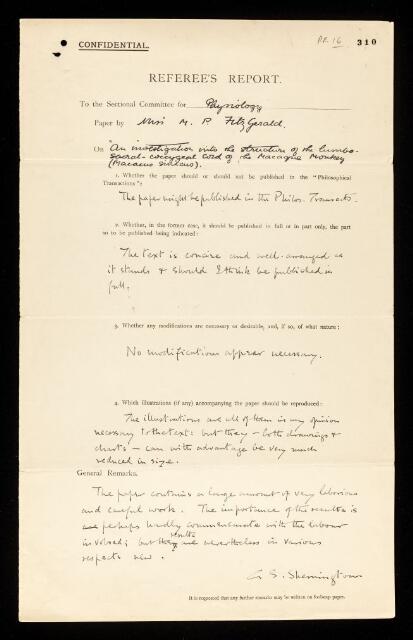 RR 16
310
CONFIDENTIAL.
REFEREE'S REPORT.
To the Sectional Committee for Physiology
Paper by Miss M. P FitzGerald.
On An investigation into the structure of the lumbo-
sacral-coccygeal cord of the Macaque Monkey
(Macacus sinicus).
1. Whether the paper should or should not be published in the "Philosophical
Transactions":
The paper might be published in the Philos. Transacts.
2. Whether, in the former case, it should be published in full or in part only, the part
so to be published being indicated:
The text is concise and well-arranged as
it stands & should I think be published in
full.
3. Whether any modifications are necessary or desirable, and, if so, of what nature:
No modifications appear necessary.
4. Which illustrations (if any) accompanying the paper should be reproduced:
The illustrations are all of them in my opinion
necessary to the text: but they – both drawings &
charts – can with advantage be very much
reduced in size.
General Remarks.
The paper contains a large amount of very laborious
and careful work. The importance of the results is
perhaps hardly commensurate with the labour
involved; but the results are nevertheless in various
respects new.
C. S. Sherrington
It is requested that any further remarks may be written on foolscap paper.